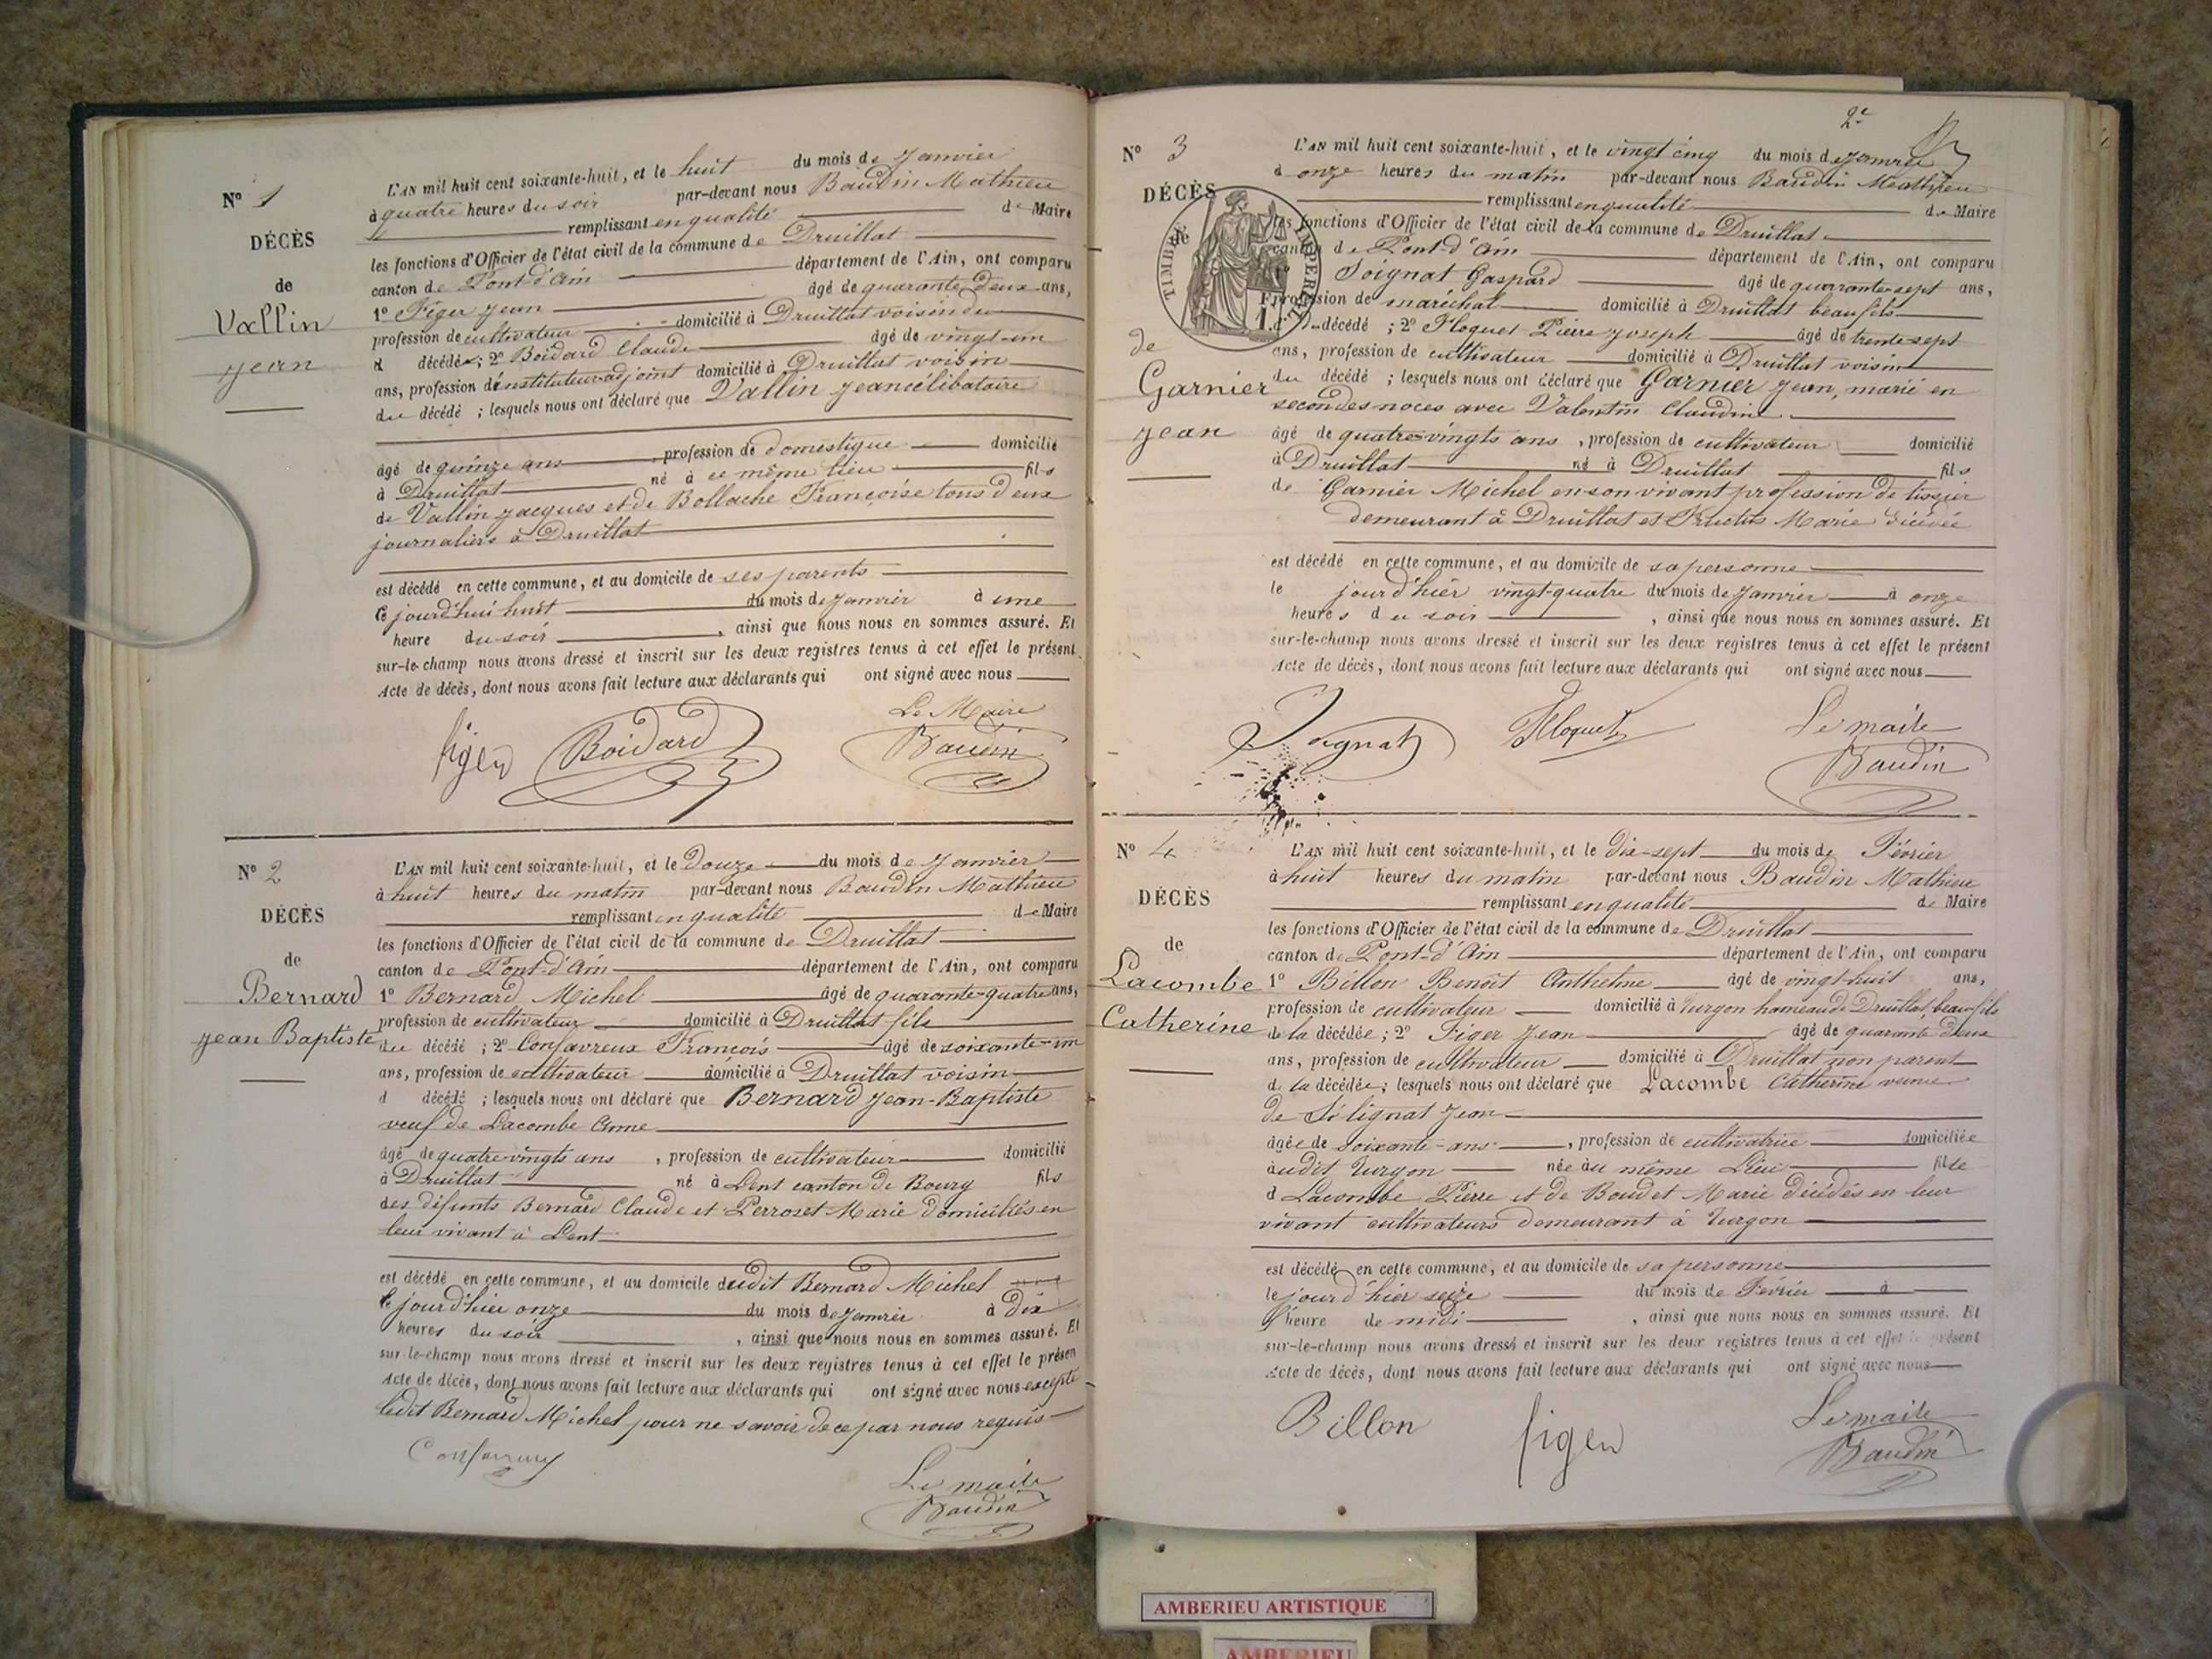 N° 1
DÉCÈS
de
Vallin
Jean
L'AN mil huit cent soixante-huit, et le huit du mois de Janvier
à quatre heures du soir par-devant nous Baudin Mathieu
remplissant en qualité de Maire
les fonctions d'Officier de l'état civil de la commune de Druillat
canton de Pont-d'Ain département de l'Ain, ont comparu
1° Figer Jean âgé de quarante deux ans,
profession de cultivateur domicilié à Druillat voisin du
d décédé; 2° Boidard Claude âgé de vingt-un
ans, profession d'instituteur adjoint domicilié à Druillat voisin
du décédé ; lesquels nous ont déclaré que Vallin Jean célibataire
âgé de quinze ans, profession de domestique domicilié
à Druillat né à ce même lieu fils
de Vallin Jacques et de Bollache Françoise tous deux
journaliers à Druillat
est décédé en cette commune, et au domicile de ses parents
le jourd'hui huit du mois de Janvier à une
heure du soir, ainsi que nous nous en sommes assuré. Et
sur-le-champ nous avons dressé et inscrit sur les deux registres tenus à cet effet le présent
Acte de décès, dont nous avons fait lecture aux déclarants qui ont signé avec nous
Le Maire
figer Boidard Baudin
N° 2
DÉCÈS
de
Bernard
Jean Baptiste
L'AN mil huit cent soixante-huit, et le Douze du mois de Janvier
à huit heures du matin par-devant nous Baudin Mathieu
remplissant en qualité de Maire
les fonctions d'Officier de l'état civil de la commune de Druillat
canton de Pont-d'Ain département de l'Ain, ont comparu
1° Bernard Michel âgé de quarante-quatre ans,
profession de cultivateur domicilié à Druillat fils
du décédé ; 2° Confavreux François âgé de soixante-un
ans, profession de cultivateur domicilié à Druillat voisin
d décédé ; lesquels nous ont déclaré que Bernard Jean-Baptiste
veuf de Lacombe Anne
âgé de quatre-vingts ans, profession de cultivateur domicilié
à Druillat né à Lent canton de Bourg fils
des défunts Bernard Claude et Perroset Marie domiciliés en
leur vivant à Lent
est décédé en cette commune, et au domicile dudit Bernard Michel
le jourd'hier onze du mois de Janvier à dix
heures du soir, ainsi que nous nous en sommes assuré. Et
sur-le-champ nous avons dressé et inscrit sur les deux registres tenus à cet effet le présen
Acte de décès, dont nous avons fait lecture aux déclarants qui ont signé avec nous excepté
ledit Bernard Michel pour ne savoir de ce par nous requis
Le maire
Baudin
2e
N° 3
DÉCÈS
de
TIMBRE IMPERIAL
de
Garnier
Jean
L'AN mil huit cent soixante-huit, et le vingt cinq du mois de Janvier
à onze heures du matin par-devant nous Baudin Mathieu
remplissant en qualité de Maire
les fonctions d'Officier de l'état civil de la commune de Druillat
canton de Pont-d'Ain département de l'Ain, ont comparu
1° Soignat Gaspard âgé de quarante-sept ans,
profession de maréchal domicilié à Druillat beau fils
décédé ; 2° Floquet Pierre Joseph âgé de trente sept
ans, profession de cultivateur domicilié à Druillat voisin
du décédé ; lesquels nous ont déclaré que Garnier Jean, marié en
secondes noces avec Valentin Claudine
âgé de quatre-vingts ans, profession de cultivateur domicilié
à Druillat né à Druillat fils
de Garnier Michel en son vivant profession de tissier
demeurant à Druillat et Marie décédée
est décédé en cette commune, et au domicile de sa personne
le jourd'hier vingt-quatre du mois de Janvier à onze
heures du soir, ainsi que nous nous en sommes assuré. Et
sur-le-champ nous avons dressé et inscrit sur les deux registres tenus à cet effet le présent
Acte de décès, dont nous avons fait lecture aux déclarants qui ont signé avec nous
Soignat Floquet Le maire
Baudin
N° 4
DÉCÈS
de
Lacombe
Catherine
L'AN mil huit cent soixante-huit, et le dix-sept du mois de Février
à huit heures du matin par-devant nous Baudin Mathieu
remplissant en qualité de Maire
les fonctions d'Officier de l'état civil de la commune de Druillat
canton de Pont-d'Ain département de l'Ain, ont comparu
1° Billon Benoît Anthelme âgé de vingt-huit ans,
profession de cultivateur domicilié à Turgon hameau de Druillat, beau fils
de la décédée; 2° Figer Jean âgé de quarante deux
ans, profession de cultivateur domicilié à Druillat non parent
de la décédée; lesquels nous ont déclaré que Lacombe Catherine veuve
de Silignat Jean
âgée de soixante-ans, profession de cultivatrice domiciliée
audit Turgon née au même Lieu fille
d Lacombe Pierre et de Boudet Marie décédés en leur
vivant cultivateurs demeurant à Turgon
est décédé en cette commune, et au domicile de sa personne
le jourd'hier seize du mois de Février à
l'heure de midi, ainsi que nous nous en sommes assuré. Et
sur-le-champ nous avons dressé et inscrit sur les deux registres tenus à cet effet le présent
Acte de décès, dont nous avons fait lecture aux déclarants qui ont signé avec nous
Billon figer Le maire
Baudin
AMBERIEU ARTISTIQUE
AMBERIEU